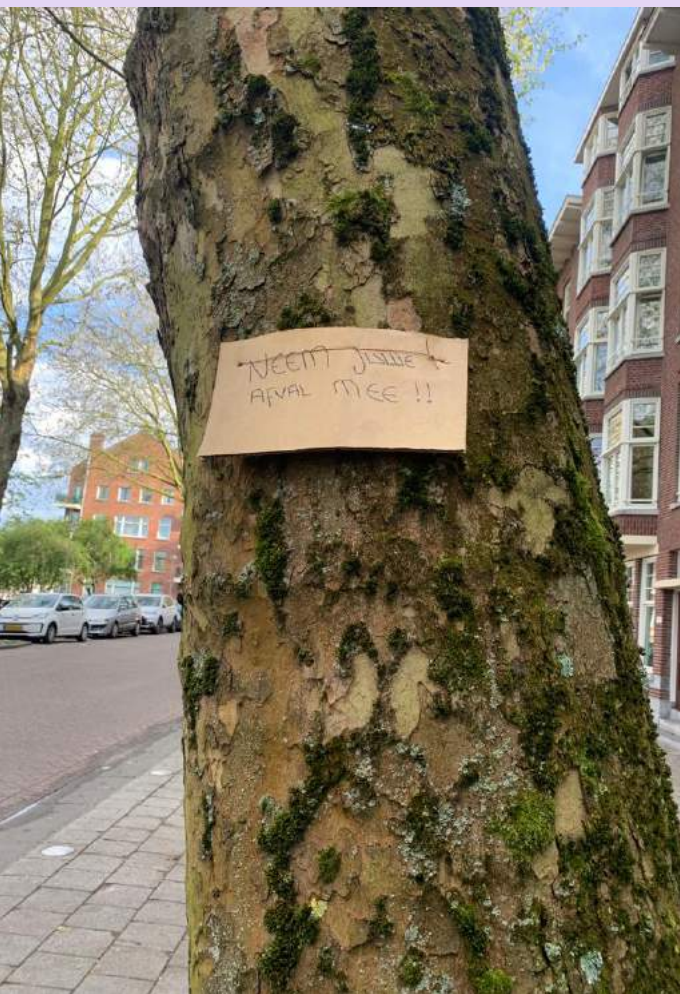 NEEM JULLIE
AFVAL MEE !!